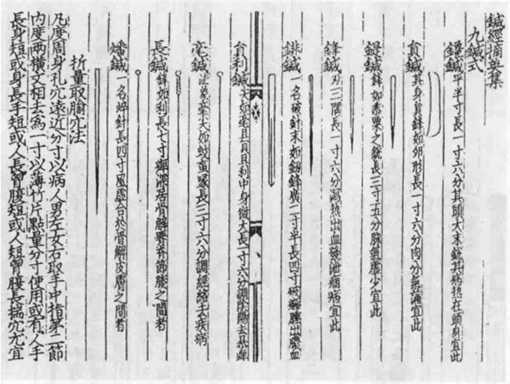 鍼經摘英集
九鍼式
鑱鍼 平半寸長一寸六分其頭大末銳其病熱在頭身宜此
員鍼 其身員鋒如卵形長一寸六分肉分氣滿宜此
鍉鍼 鋒如黍粟之銳長三寸五分脉氣虛少宜此
鋒鍼 刃三隅長一寸六分瀉熱出血發泄痼病宜此
鈹鍼 一名破針末如劒鋒廣二寸半長四寸破癰腫出膿血
員利鍼 尖如氂且員且利中身微大長一寸六分
毫鍼 法象毫尖如蚊䖟喙長三寸六分調經絡去疾病
長鍼 鋒如利長七寸痺深居骨解腰脊節腠之間者
燔鍼 一名焠針長四寸風虛合於骨解皮膚之間者
折量取腧穴法
凡度周身孔穴遠近分寸以病人男左女右取手中指第二節
內度兩橫文相去為一寸以薄竹片點量分寸使用或有人手
長身短或身長手短或人長胷腹短或人短胷腹長揣穴尤宜